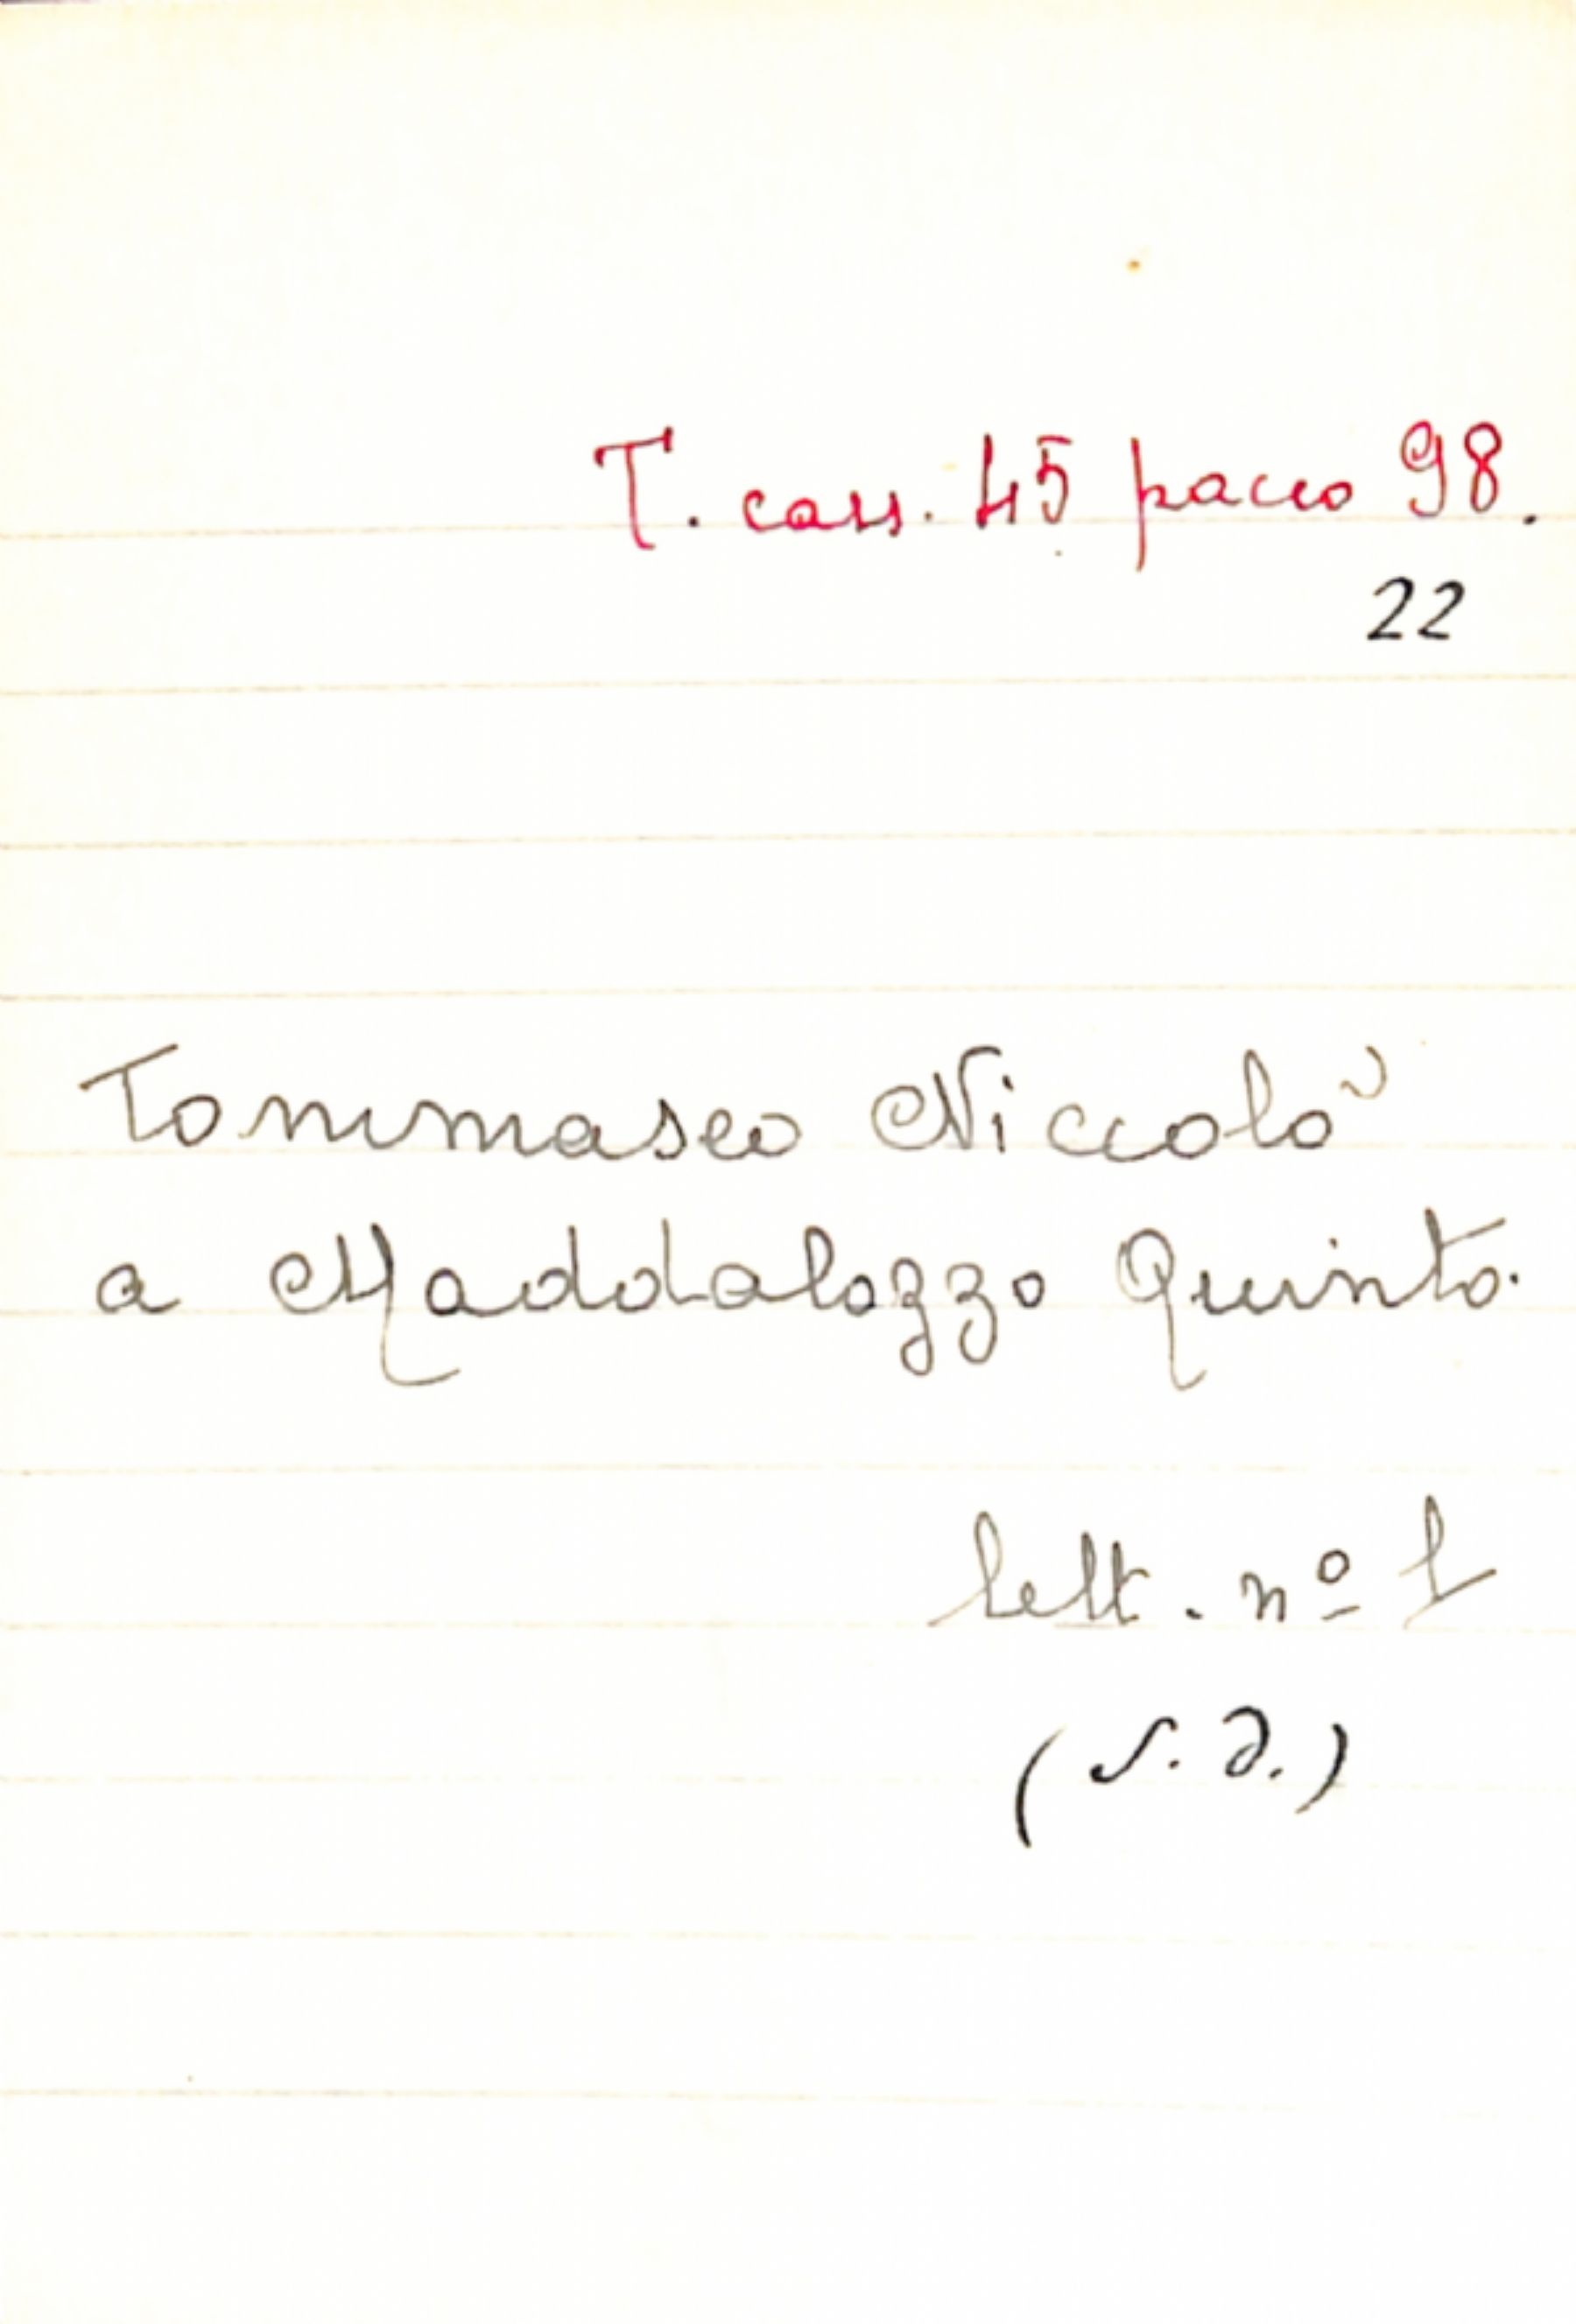 T. cass. 45 pacco 98.
22
Tommaseo Niccolò
a Maddalozzo Quinto.
lett. nº 1
(s.d.)